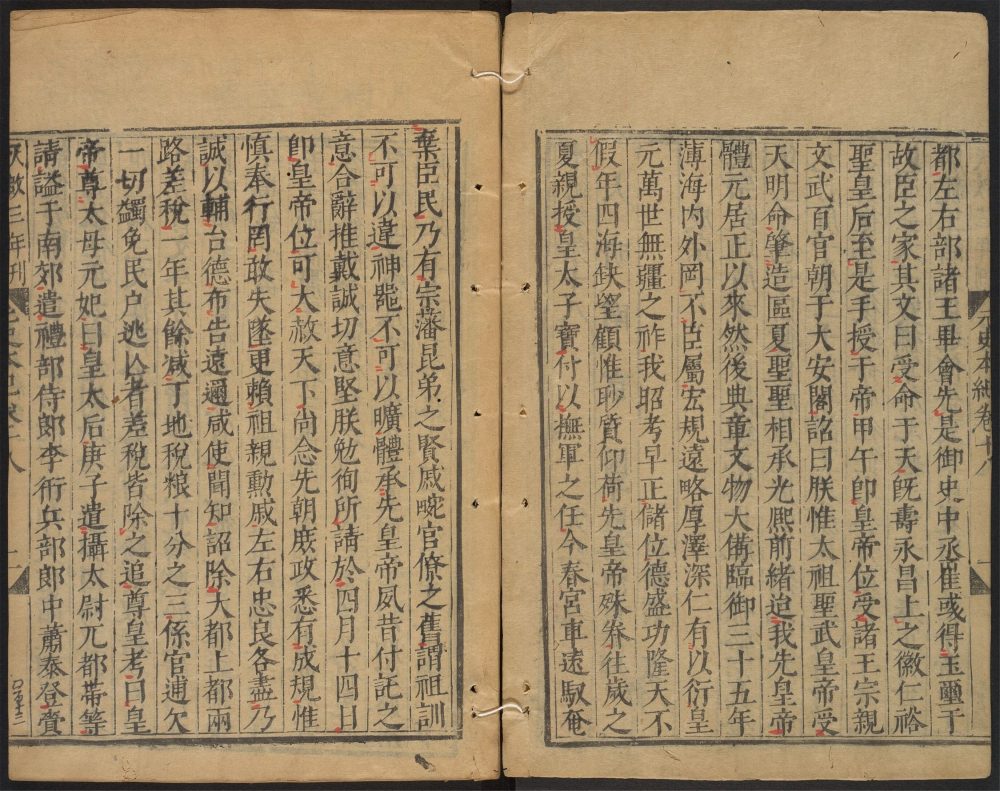 元史本紀卷十八
都左右部諸王畢會先是御史中丞崔彧得玉璽于
故臣之家其文曰受命于天旣壽永昌上之徽仁裕
聖皇后至是手授于帝甲午卽皇帝位受諸王宗親
文武百官朝于大安閣詔曰朕惟太祖聖武皇帝受
天明命肇造區夏聖聖相承光熈前緒迨我先皇帝
體元居正以來然後典章文物大備臨御三十五年
薄海內外罔不臣屬宏規遠略厚澤深仁有以衍皇
元萬世無疆之祚我昭考早正儲位德盛功隆天不
假年四海缺望顧惟眇質仰荷先皇帝殊眷往歲之
夏親授皇太子寶付以撫軍之任今春宮車遠馭奄
棄臣民乃有宗藩昆弟之賢戚畹官僚之舊謂祖訓
不可以違神噐不可以曠體承先皇帝夙昔付託之
意合辭推戴誠切意堅朕勉徇所請於四月十四日
卽皇帝位可大赦天下尚念先朝庶政悉有成規惟
慎奉行罔敢失墜更賴祖親勳戚左右忠良各盡乃
誠以輔台德布告遠邇咸使聞知詔除大都上都兩
路差稅一年其餘减丁地稅粮十分之三係官逋欠
一切蠲免民户逃亾者差稅皆除之追尊皇考曰皇
帝尊太母元妃曰皇太后庚子遣攝太尉兀都帶等
請謚于南郊遣禮部侍郞李衎兵部郞中蕭泰登賫